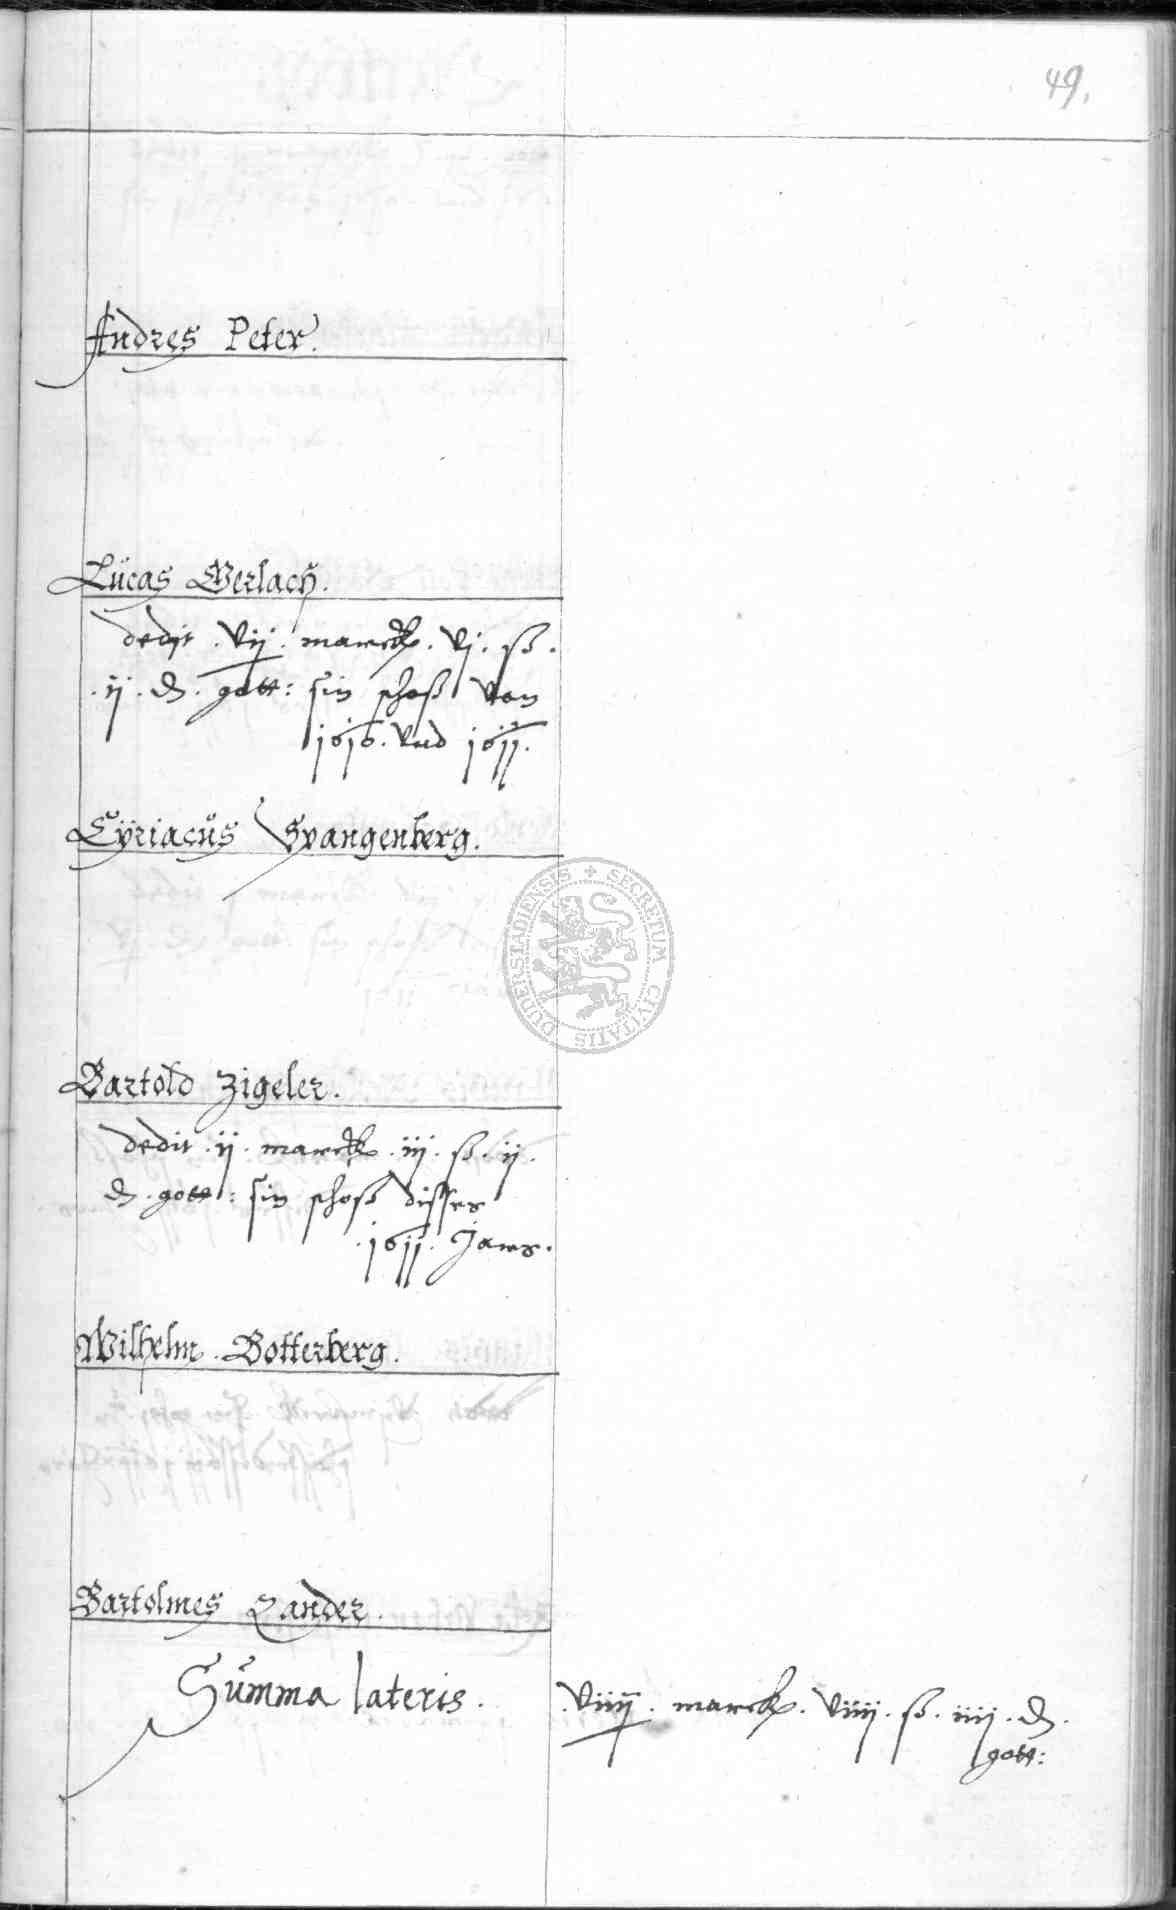 49.
Andres Peter.
Lucas Gerlach.
dedit . vij . marck . vj . ß .
. ij . d . gott : sin schoß von
1610 . vnd 1611 .
Cÿriacus Spangenberg.
Bartold Zigeler.
dedit . ij . marck . iij . ß . ij .
d . gott : sin schoß disses
. 1611 . Jars .
Wilhelm . Botterberg .
Bartolmes Zander .
Summa lateris .
. viiij . marck . viiij . ß . iiij . d .
gott :
SECRETUM CIVITATIS DUDERSTADIENSIS